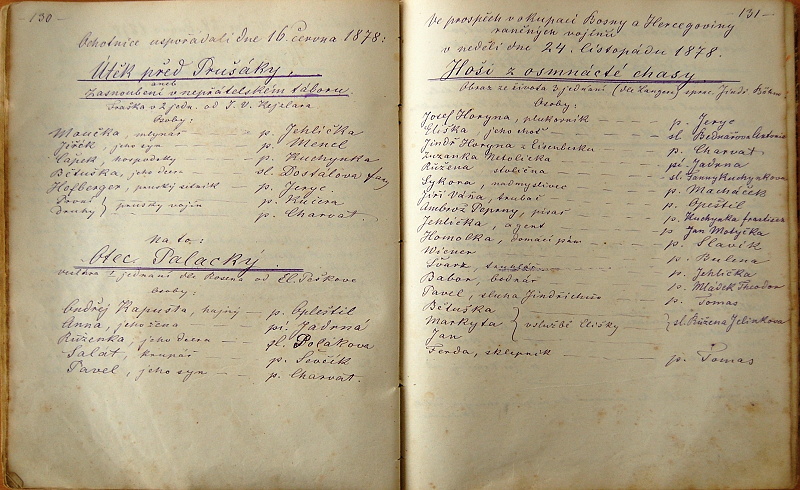 - 130 -
Ochotnice uspořádali dne 16. června 1878:
Útěk před Prušáky,
aneb
Zasnoubení v nepřátelském táboru.
Fraška v 2 jedn. od J. V. Hejzlara
Osoby:
Maučka, mlynář - - - p. Jehlička
Jeřek, jeho syn - - - p. Mencl
Čapek, hospodský - - - p. Kuchynka
Bětuška, jeho dcera - - - sl. Dostálova Fany
Hofberger, pruský setník - - - p. Jeryc.
První } pruský vojín - - - p. Kučera
Druhý } - - - p. Charvat.
Na to:
Otec Palacký.
veselohra v 1 jednání dle Rosena od El. Peškove
Osoby:
Ondřej Kapusta, hajný - p. Opleštil
Anna, jeho žena - - - pí. Jadrná
Růženka, jeho dcera - - - sl. Polákova
Salát, krupař - - - p. Ševčík
Pavel, jeho syn - - - p. Charvát.
- 131 -
Ve prospěch v okupaci Bosny a Hercegoviny
raněných vojínů
v neděli dne 24. listopádu 1878.
Hoši z osmnácté chasy.
Obraz ze života 3 jednání (dle Langer) sprac. Jindř. Böhm
Osoby:
Josef Horyna, plukovník - - - p. Jeryc
Eliška, jeho choť - - - sl. Bednářova Antonie
Jindř. Horyna z - - - p. Charvat
Zuzanka Netolička - - - pí. Jadrna
Růžena - - - sl. Fanny Kuchynkova
Sykora, nadmyslivec - - - p. Macháček
Jiří Váňa, trubač - - - p. Opeštil
Ambrož Peprný, písař - - - p. Kuchynka František
Jehlička, agent - - - p. Jan Motyčka
Homolka, domácí pán - - - p. Slavík
Wiener - - - p. Bulena
Švarc, - - - p. Jehlička
Babor, bednář - - - p. Mládek Theodor
Pavel, sluha Jindřichův - - - p. Tomas
Bětuška
Markyta } v službě Elišky - - - } sl. Růžena Jelínkova
Jan
Ferda, sklepník - - - p. Tomas